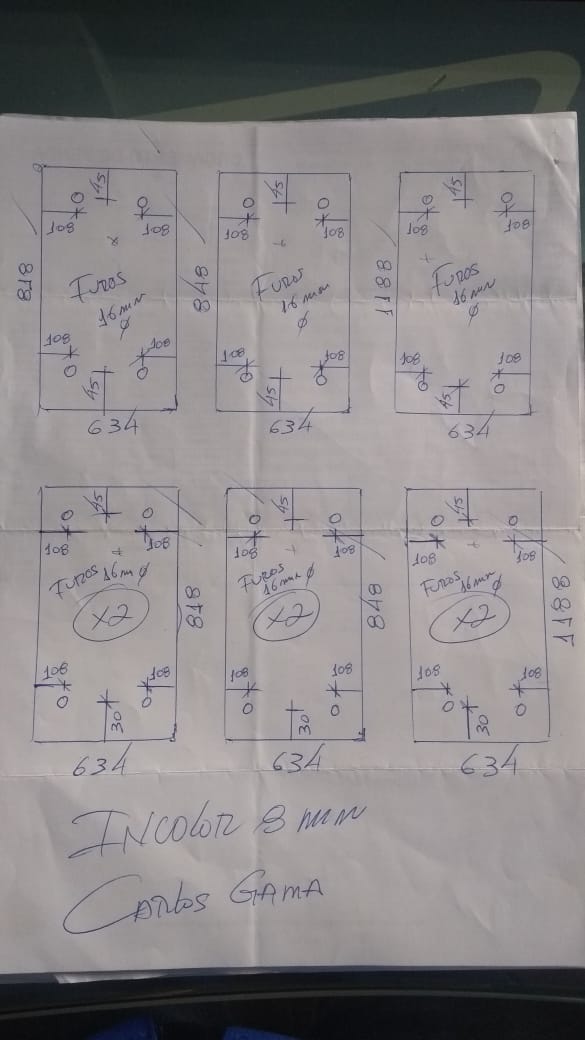 45 45 45
108 108 108 108 108 108
818 848 1188
Furos Furos Furos
16mm 16mm 16mm
Ø Ø Ø
108 108 108 108 108 108
45 45 45
634 634 634
45 45 45
108 108 108 108 108 108
Furos 16mm Ø Furos 16mm Ø Furos 16mm Ø
x2 x2 x2
818 848 1188
108 108 108 108 108 108
30 30 30
634 634 634
INCOLOR 8 mm
CARLOS GAMA